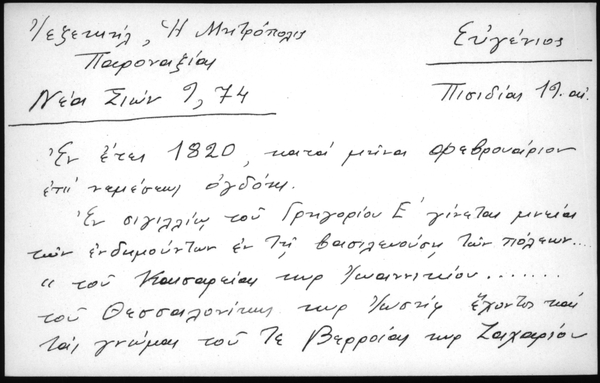 Ἰεζεκιήλ, Ἡ Μητρόπολις
Παροναξίας
Εὐγένιος
Νέα Σιών 9, 74
Πισιδίας 19. αἰ.
Ἐν ἔτει 1820, κατά μῆνα Φεβρουάριον
ἐπί νεμέσεως ὀγδόης.
Ἐν σιγιλλίῳ τοῦ Γρηγορίου Ε΄ γίνεται μνεία
τῶν ἐνδημούντων ἐν τῇ βασιλευούσῃ τῶν πόλεων....
"τοῦ Καισαρείας κυρ Ἰωαννικίου.......
τοῦ Θεσσαλονίκης κυρ Ἰωσήφ ἔχοντος καί
τάς γνώμας τοῦ τε Βερροίας κυρ Ζαχαρίου